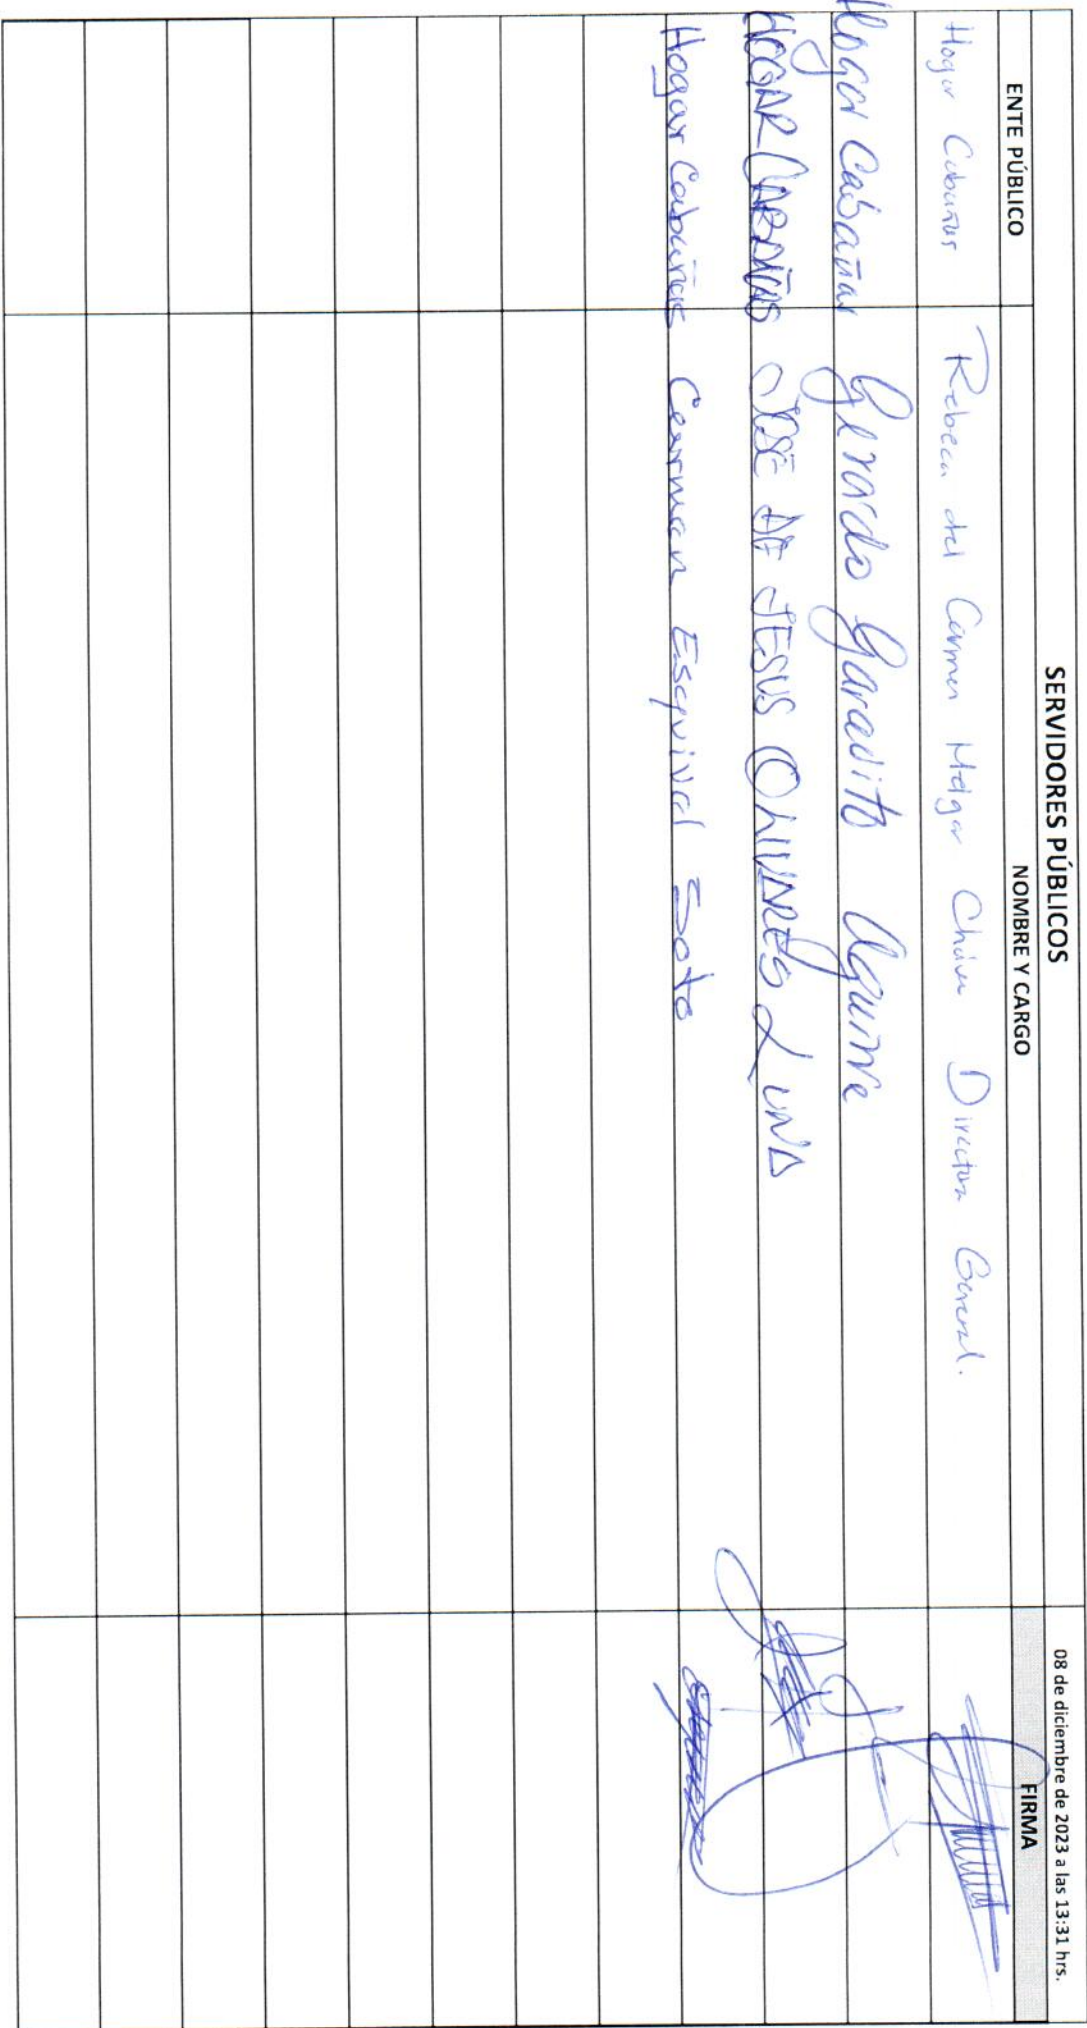 SERVIDORES PÚBLICOS
08 de diciembre de 2023 a las 13:31 hrs.
ENTE PÚBLICO NOMBRE Y CARGO FIRMA
Hogar Cabañas Rebeca del Carmen Melgar Chávez Directora General.
Hogar Cabañas Gerardo Garavito Aguirre
HOGAR CABAÑAS JOSE DE JESUS OLIVARES LUNA
Hogar Cabañas Carmen Esquivel Soto